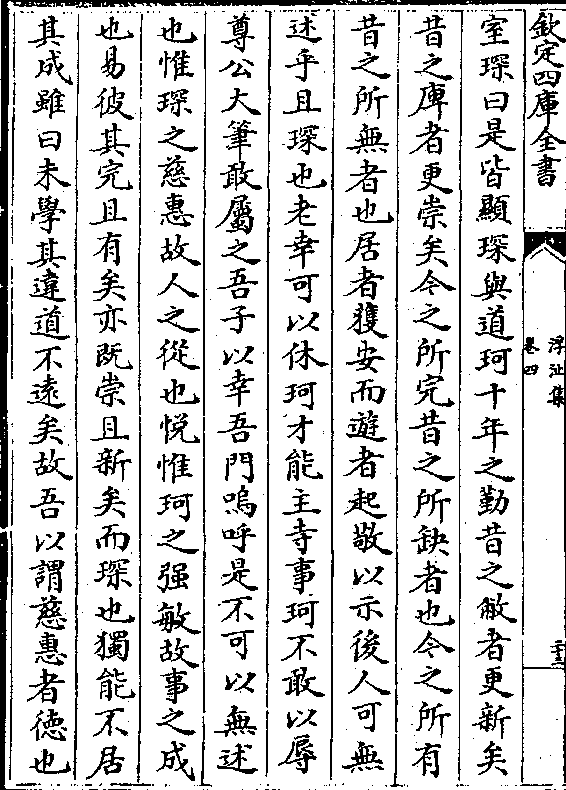 欽定四庫全書
浮沚集
卷四
二十三
室琛曰是皆顯琛與道珂十年之勤昔之敝者更新矣
昔之庳者更崇矣今之所完昔之所缺者也今之所有
昔之所無者也居者獲安而遊者起敬以示後人可無
述乎且琛也老幸可以休珂才能主寺事珂不敢以辱
尊公大筆敢屬之吾子以幸吾門嗚呼是不可以無述
也惟琛之慈惠故人之從也悦惟珂之强敏故事之成
也易彼其完且有矣亦既崇且新矣而琛也獨能不居
其成雖曰未學其違道不遠矣故吾以謂慈惠者徳也